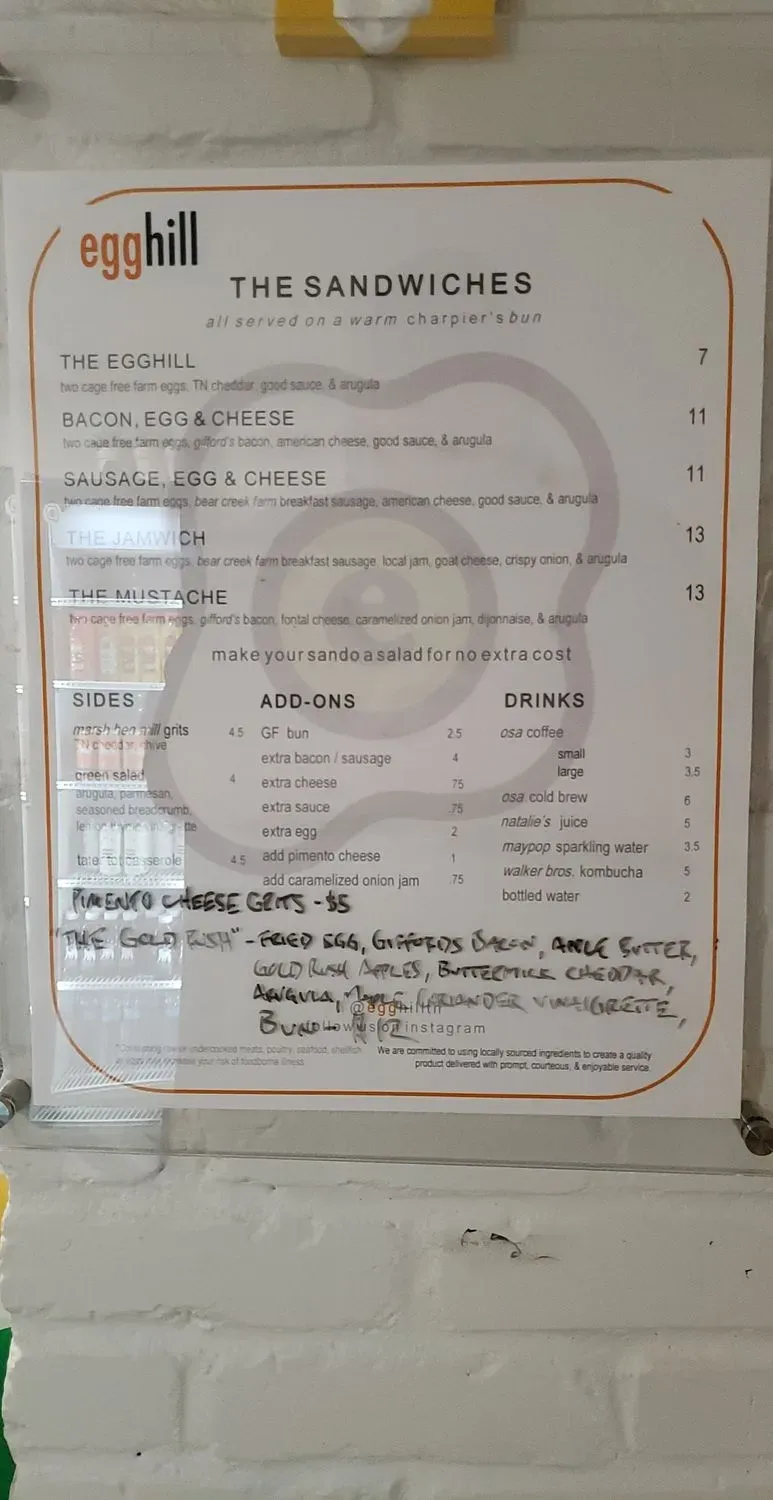 egghill
THE SANDWICHES
all served on a warm charpier's bun
THE EGGHILL 7
two cage free farm eggs, TN cheddar, good sauce, & arugula
BACON, EGG & CHEESE 11
two cage free farm eggs, gifford's bacon, american cheese, good sauce, & arugula
SAUSAGE, EGG & CHEESE 11
two cage free farm eggs, bear creek farm breakfast sausage, american cheese, good sauce, & arugula
THE JAMWICH 13
two cage free farm eggs, bear creek farm breakfast sausage, local jam, goat cheese, crispy onion, & arugula
THE MUSTACHE 13
two cage free farm eggs, gifford's bacon, fontal cheese, caramelized onion jam, dijonnaise, & arugula
make your sando a salad for no extra cost
SIDES
marsh hen mill grits 4.5
TN cheddar, chive
green salad 4
arugula, parmesan,
seasoned breadcrumb,
lemon thyme
tater tot casserole 4.5
ADD-ONS
GF bun 2.5
extra bacon / sausage 4
extra cheese .75
extra sauce .75
extra egg 2
add pimento cheese 1
add caramelized onion jam .75
DRINKS
osa coffee
small 3
large 3.5
osa cold brew 6
natalie's juice 5
maypop sparkling water 3.5
walker bros. kombucha 5
bottled water 2
PIMENTO CHEESE GRITS - $5
"THE GOLD RUSH" - FRIED EGG, GIFFORDS BACON, APPLE BUTTER,
GOLD RUSH APPLES, BUTTERMILK CHEDDAR,
ARUGULA, MAPLE CORIANDER VINAIGRETTE,
BUN - $12
follow us on instagram
*Consuming raw or undercooked meats, poultry, seafood, shellfish
or eggs may increase your risk of foodborne illness
We are committed to using locally sourced ingredients to create a quality
product delivered with prompt, courteous, & enjoyable service.